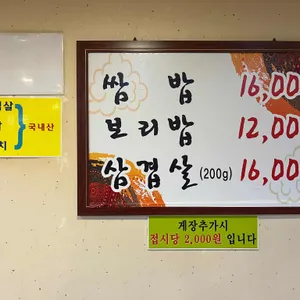 쌈 밥 16,00
보리밥 12,00
삼겹살 (200g) 16,00
살
치
국내산
게장추가시
접시당 2,000원 입니다